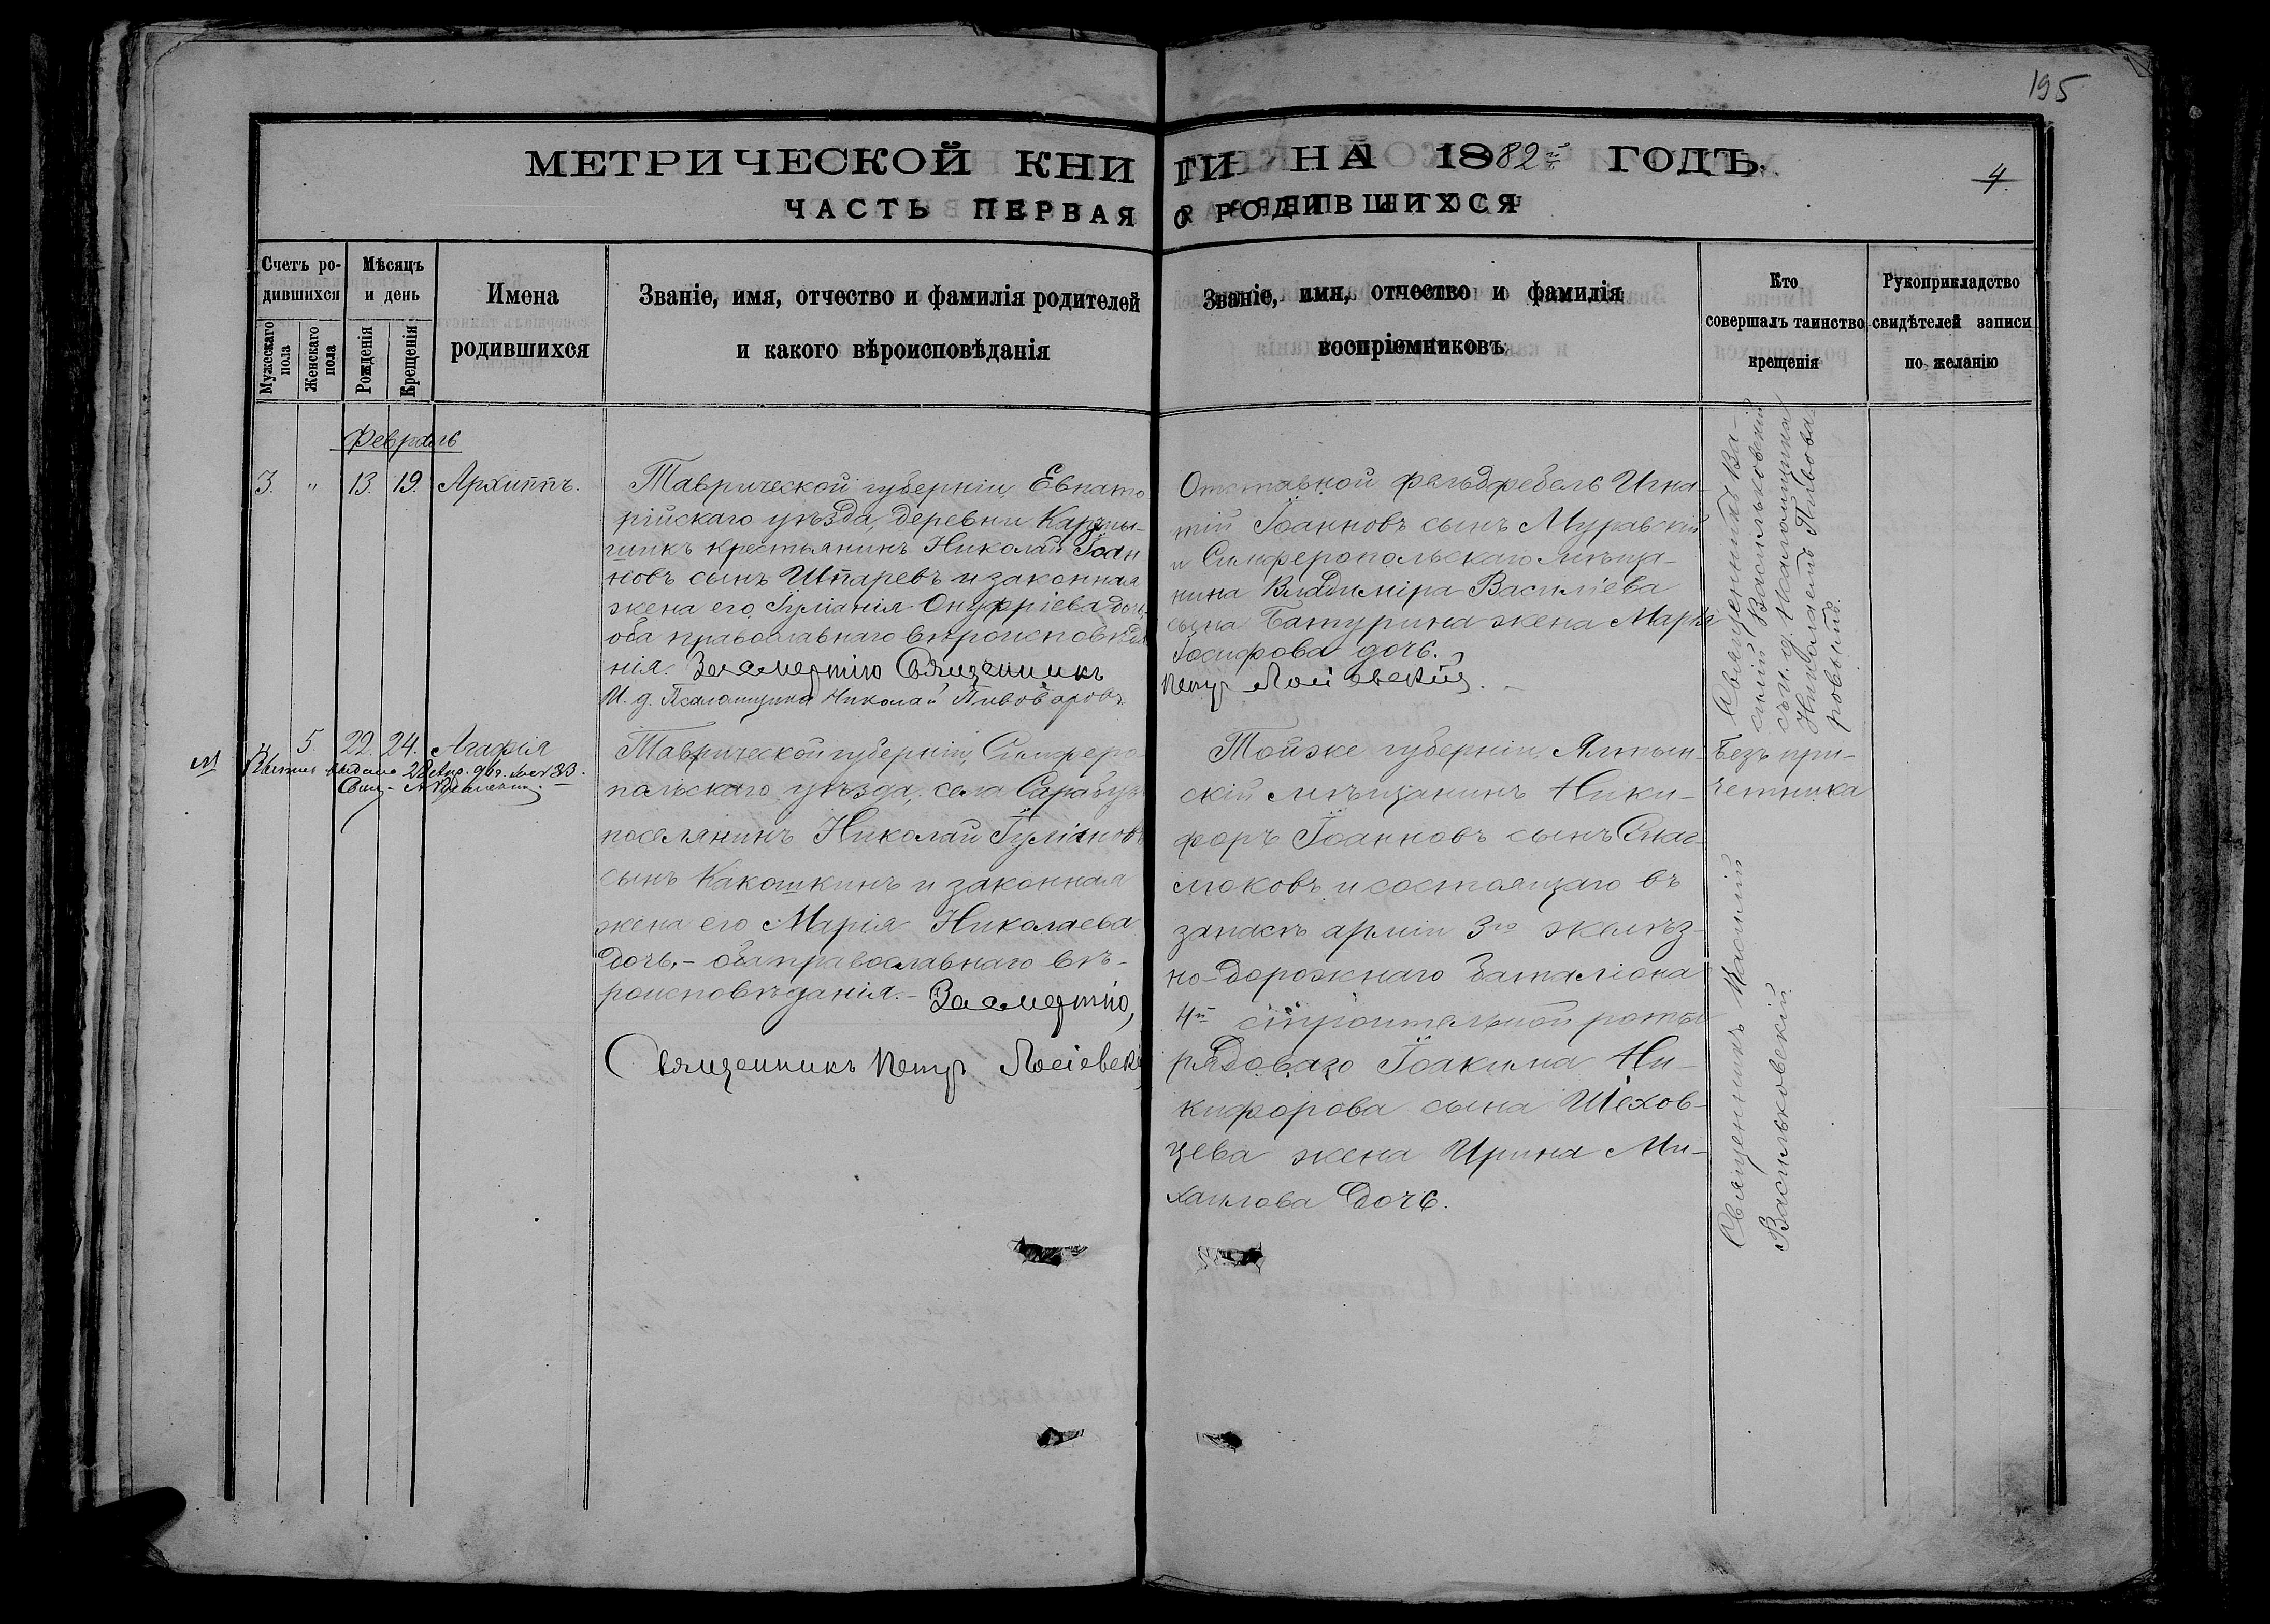 195
МЕТРИЧЕСКОЙ КНИГИ НА 1882й ГОДЪ.
4.
ЧАСТЬ ПЕРВАЯ О РОДИВШИХСЯ
Счетъ ро-
дившихся
Мужескаго
пола
Женскаго
пола
Мѣсяцъ
и день
Рожденія
Крещенія
Имена
родившихся
Званіе, имя, отчество и фамилія родителей
и какого вѣроисповѣданія
Званіе, имя, отчество и фамилія
воспріемниковъ
Кто
совершалъ таинство
крещенія
Рукоприкладство
свидѣтелей записи
по желанію
Февраль
3. " 13. 19. Архиппъ.
Таврической губерніи, Евпато-
рійскаго уѣзда, деревни
крестьянинъ Николай Іоан
новъ сынъ Шпаревъ и законная
жена его Іуліанія Онуфріева дочь,
оба православнаго вѣроисповѣда
нія. За смертію Священникъ
И. д. Псаломщика Николай Пивоваровъ
Отставной фельдфебель Игна-
тій Іоанновъ сынъ Муравскій
и Симферопольскаго мѣща-
нина Владиміра Василіева
сына Батурина жена Марія
Іосифова дочь.
Петръ Лосіевскій.
Священникъ Ва-
силій Васильковскій
съ и. д. Псаломщика
Николаемъ Пивова
ровымъ.
5. 22. 24. Агафія
М
выдана 28 Апр. 96г. за № 33.
Свящ.
Таврической губерніи, Симферо-
польскаго уѣзда, села Сарабузъ
поселянинъ Николай Іуліановъ
сынъ Какошкинъ и законная
жена его Марія Николаева
дочь, - оба православнаго вѣ-
роисповѣданія. - За смертію,
Священникъ Петръ Лосіевскій
Тойже губерніи, Ялтин-
скій мѣщанинъ Ники-
форъ Іоанновъ сынъ
и состоящаго въ
запасѣ арміи 3го желѣз-
но-дорожнаго баталіона
4й строительной роты
рядоваго Іоакима Ни-
кифорова сына Шехов-
цева жена Ирина Ми-
хаилова дочь.
Безъ при-
четника
Священникъ Василій
Васильковскій